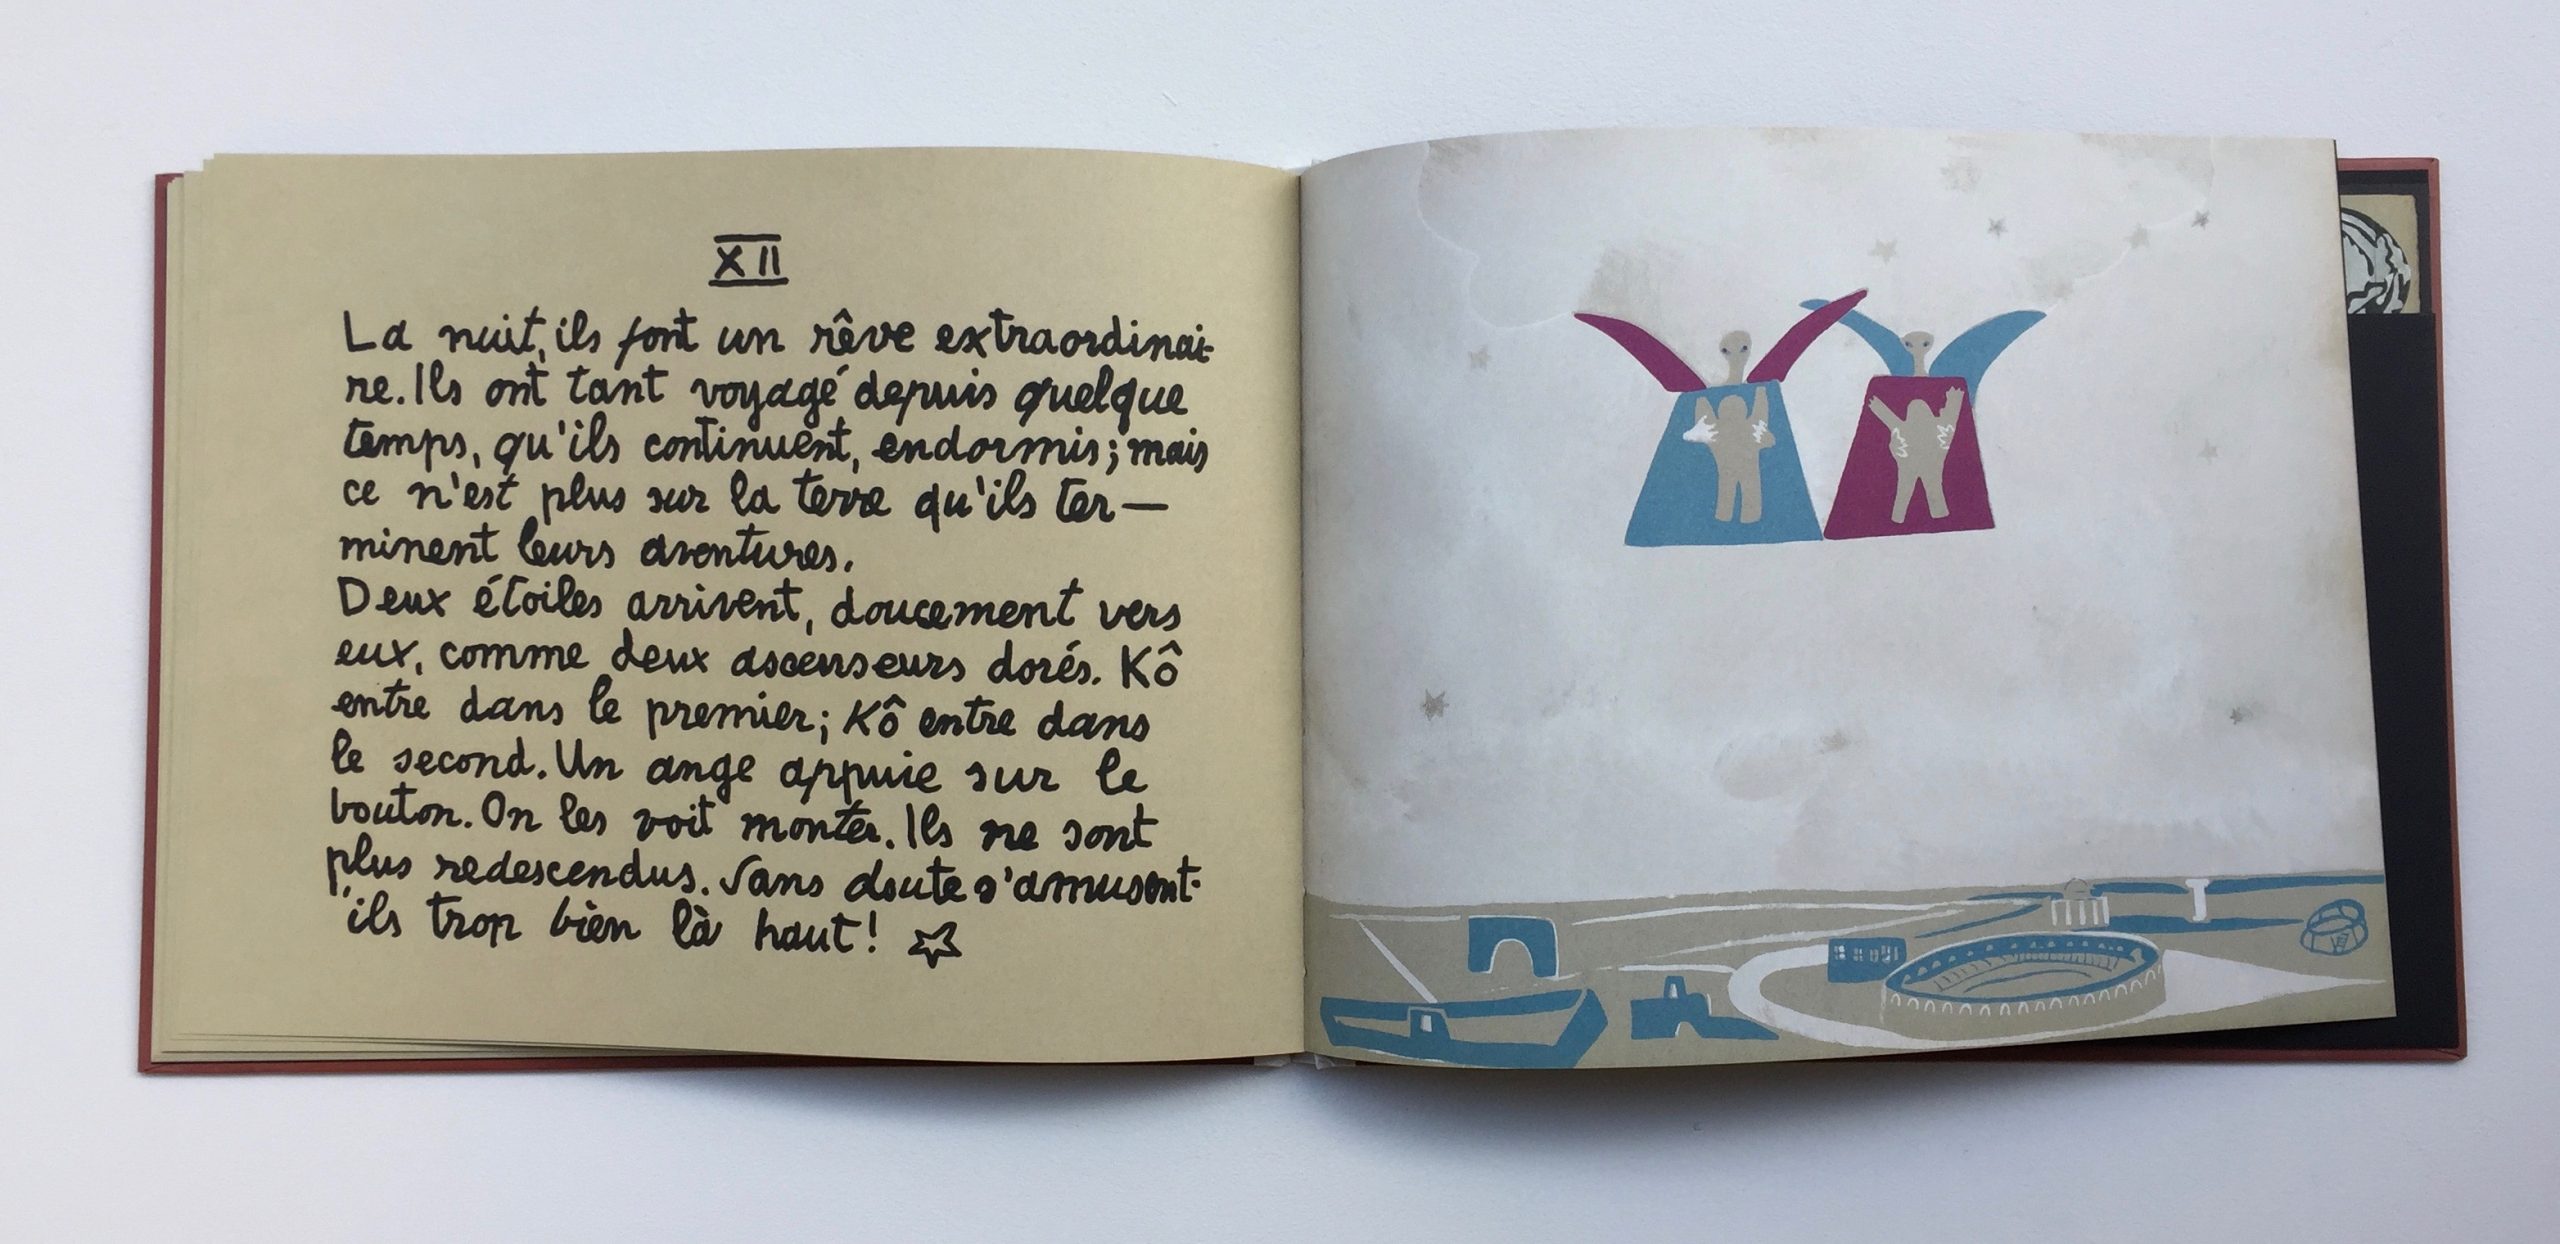 XII
La nuit, ils font un rêve extraordinai-
re. Ils ont tant voyagé depuis quelque
temps, qu'ils continuent, endormis; mais
ce n'est plus sur la terre qu'ils ter—
minent leurs aventures.
Deux étoiles arrivent, doucement vers
eux, comme deux ascenseurs dorés. Kô
entre dans le premier; Kô entre dans
le second. Un ange appuie sur le
bouton. On les voit monter. Ils ne sont
plus redescendus. Sans doute s'amusent-
ils trop bien là haut!